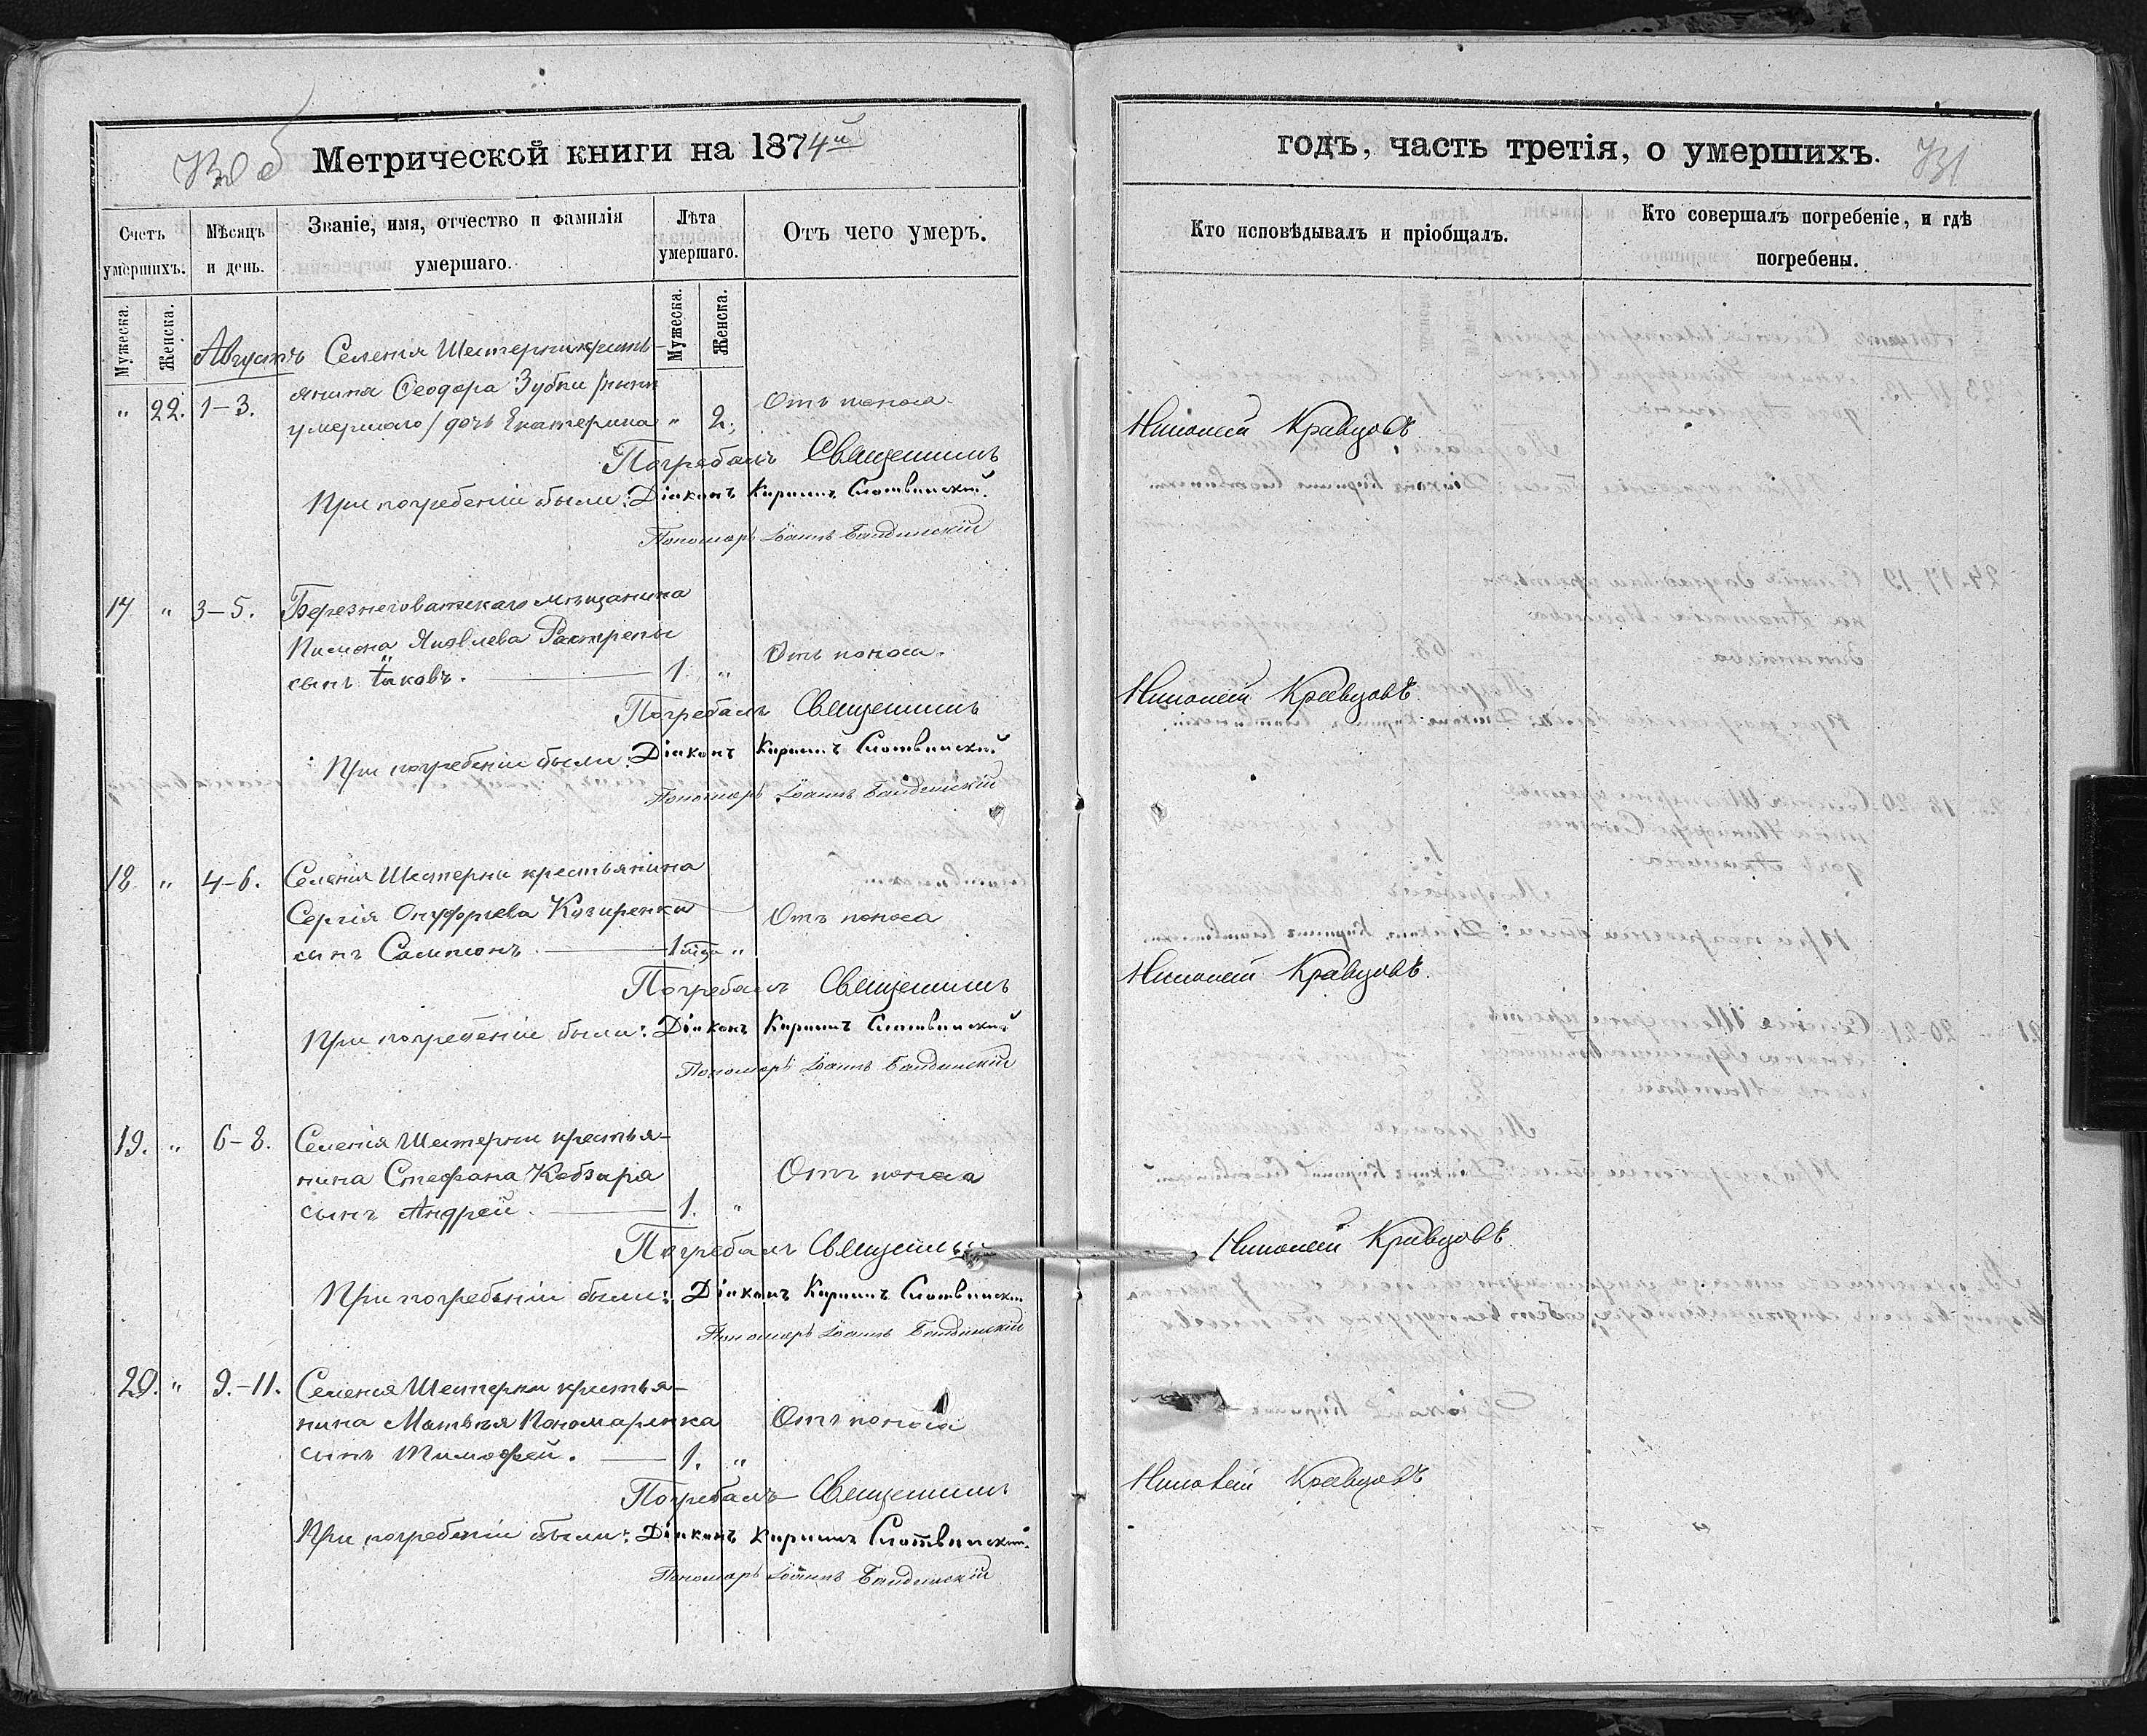 Метрической книги на 1874й
годъ, часть третія, о умершихъ.
731
Счетъ умершихъ.
Мѣсяцъ и день.
Званіе, имя, отчество и фамилія умершаго.
Лѣта умершаго.
Отъ чего умеръ.
Кто исповѣдывалъ и пріобщалъ.
Кто совершалъ погребеніе, и гдѣ погребены.
Мужеска.
Женска.
Мужеска.
Женска.
Августъ Селенія Шестерни кресть-
янина Ѳеодора Зубки /нынѣ
" 22. 1-3. умершаго/ дочь Екатерина " 2. Отъ поноса.
Погребалъ Священникъ Николай Кравцовъ
При погребеніи были: Діаконъ Кириллъ Слотвинскій.
Пономарь Іоаннъ
17 " 3-5. Березнеговатскаго мѣщанина
Пимона Яковлева
сынъ Іаковъ. 1. " Отъ поноса.
Погребалъ Священникъ Николай Кравцовъ
При погребеніи были: Діаконъ Кириллъ Слотвинскій
Пономарь Іоаннъ
18. " 4-6. Селенія Шестерни крестьянина
Сергія Онуфріева Отъ поноса
сынъ Сампсонъ 1 года "
Погребалъ Священникъ Николай Кравцовъ.
При погребеніи были: Діаконъ Кириллъ Слотвинскій
Пономарь Іоаннъ
19. " 6-8. Селенія Шестерни крестья-
нина Стефана Кобзаря Отъ поноса
сынъ Андрей. 1. "
Погребалъ Священникъ Николай Кравцовъ
При погребеніи были: Діаконъ Кириллъ Слотвинскій
Пономарь Іоаннъ
20. " 9.-11. Селенія Шестерни крестья-
нина Матвѣя Пономаренка Отъ поноса
сынъ Тимофей. 1. "
Погребалъ Священникъ Николай Кравцовъ
При погребеніи были: Діаконъ Кириллъ Слотвинскій.
Пономарь Іоаннъ